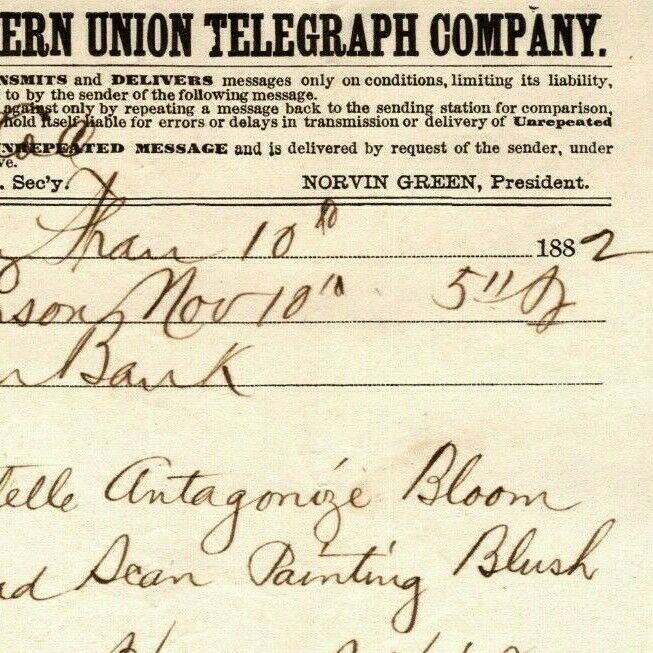 ERN UNION TELEGRAPH COMPANY.
NSMITS and DELIVERS messages only on conditions, limiting its liability,
to by the sender of the following message.
against only by repeating a message back to the sending station for comparison,
hold itself liable for errors or delays in transmission or delivery of Unrepeated
UNREPEATED MESSAGE and is delivered by request of the sender, under
ve.
. Sec'y. NORVIN GREEN, President.
10 1882
rson Nov 10" 5"
Bank
telle Antagonize Bloom
Dean Painting Blush